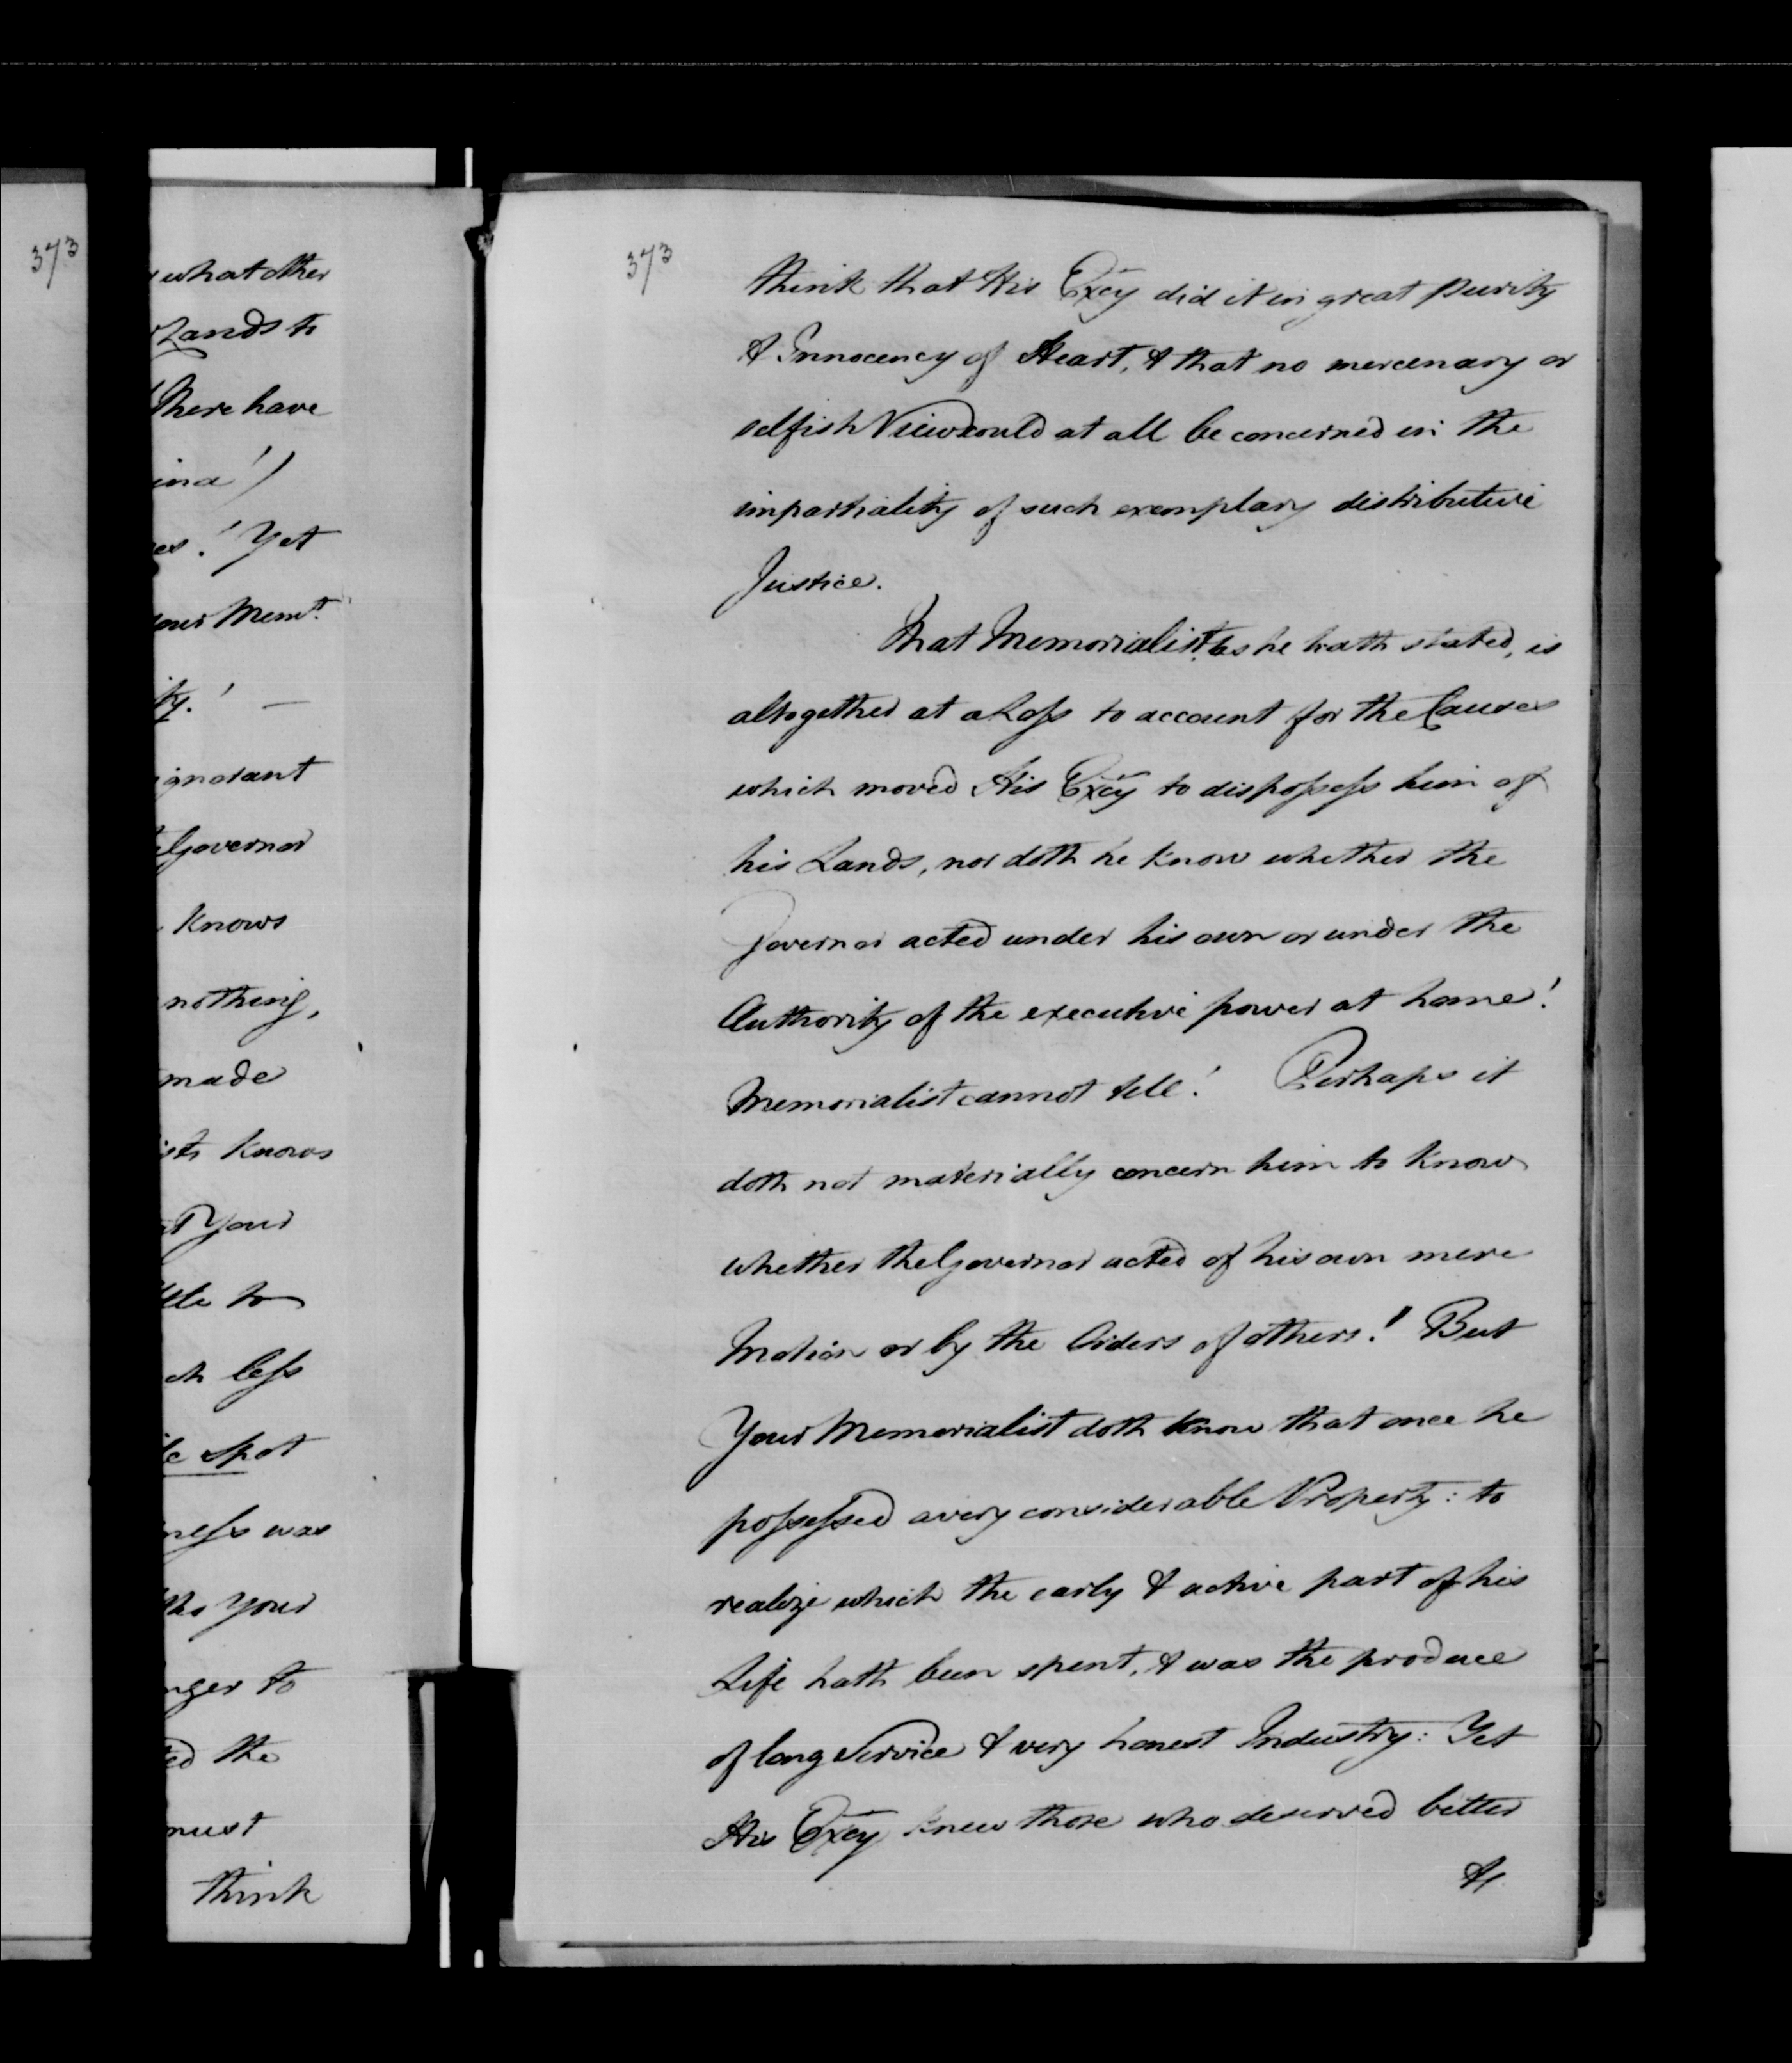 373
what other
Lands to
there have
ind!)
Yet
our Memt.
ignorant
Governor
knows
nothing,
made
knows
Your
to
less
spot
was
Your
to
the
must
think
373
think that His Excy did it in great purity
& Innocency of Heart, & that no mercenary or
selfish View could at all be concerned in the
impartiality of such exemplary distributive
Justice.
That Memorialist, as he hath stated, is
altogether at a Loss to account for the Causes
which moved His Excy to dispossess him of
his Lands, nor doth he know whether the
Governor acted under his own or under the
Authority of the executive power at home!
Memorialist cannot tell! Perhaps it
doth not materially concern him to know
whether the Governor acted of his own mere
Motion or by the Orders of others!! But
Your Memorialist doth know that once he
possessed a very considerable Property: to
realize which the early & active part of his
Life hath been spent, & was the produce
of long Service & very honest Industry: Yet
His Excy knew those who deserved better
&